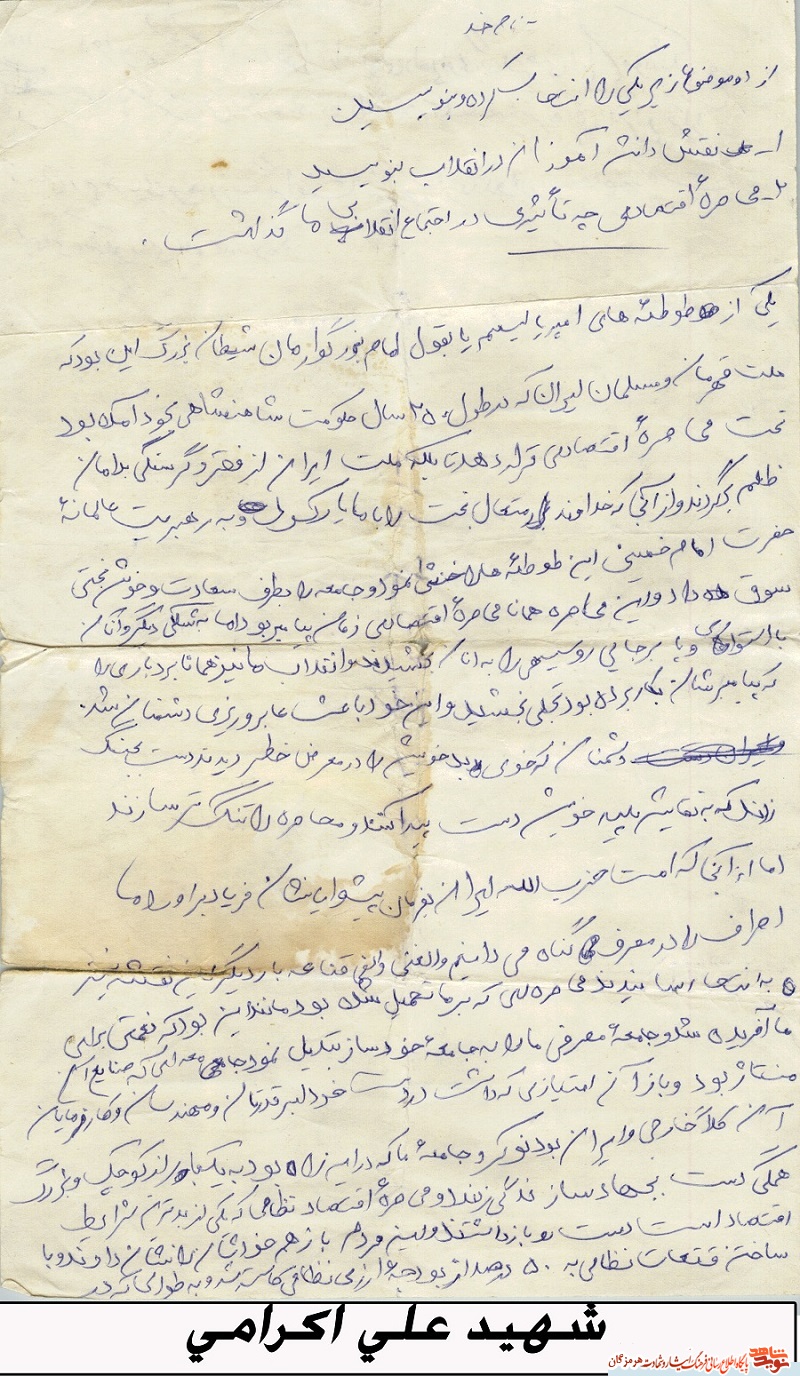 بنام خدا
از دو موضوع زیر یکی را انتخاب کرده و بنویسید
۱- نقش دانش آموزان در انقلاب بنویسید
۲- محاصرهٔ اقتصادی چه تأثیری در اجتماع انقلابی ما گذاشت .
یکی از طوطئه های امپریالیسم یا بقول امام بزرگوارمان شیطان بزرگ این بود که
ملت قهرمان و مسلمان ایران که در طول ۲۵۰۰ سال حکومت شاهنشاهی بخود امکا بود
تحت محاصرهٔ اقتصادی قرار دهد تا بلکه ملت ایران از فقر و گرسنگی بدامان
ظلم بگردند و از آنجا که خداوند متعال تحت را با ما یار و به رهبریت عالمانهٔ
حضرت امام خمینی این طوطئه ها خنثی نمود و جامعه را بطرف سعادت و خوش بختی
سوق داد و این محاصره همانا محاصرهٔ اقتصادی زمان پیامبر بود اما به شکلی دیگر و آنان
با استواری و پا برجایی روسیهی را به آنان بخشیدند و انقلاب ما نیز همانا بردباری را
که پیامبرشان بکار برده بود تجلی بخشید و این خود باعث عابروریزی دشمنان شد.
دشمنان که خوی خویش را در معرض خطر دیدند دست بچنگ
زدند که به نقایش پلید خویش دست پیدا کنند و محاصره را تنگ تر سازند
اما از آنجا که امت حزب الله ایران بفرمان پیشوایانشان فریاد بر اوردند ما
اصراف را در معرف گناه می دانیم والغنی والقی قناعه بار دیگر این نقشه نیز
به انتها رسانیدند محاصره ای که بر ما تحمیل شده بود مانند این بود که نعمتی برای
ما آفریده شد و جامعهٔ مصرفی ما را به جامعهٔ خود ساز تبدیل نمود جامعه ای که صنایع اش
منتاژ بود و باز آن امتیازی که داشت در دست خود ابرقدرتان و مهندسان و کارفرمایان
آن کلاً خارجی و ایران بود نوکر و جامعهٔ ما که در این راه بود به یکباره از کوچک و بزرگ
همگی دست بجهاد سازندگی زدند و محاصرهٔ اقتصاد نظامی که یکی از بدترین شرایط
اقتصاد است دست و باز داشتند ولی مردم باز هم خودشان را نشان دادند و با
ساختن قتعات نظامی به ۵۰ درصد از بودجهٔ ارزی نظامی کاسته شد و به طوری که در
شهید علي اكرامي
نوید شاهد
پایگاه اطلاع رسانی فرهنگ ایثار و شهادت هرمزگان